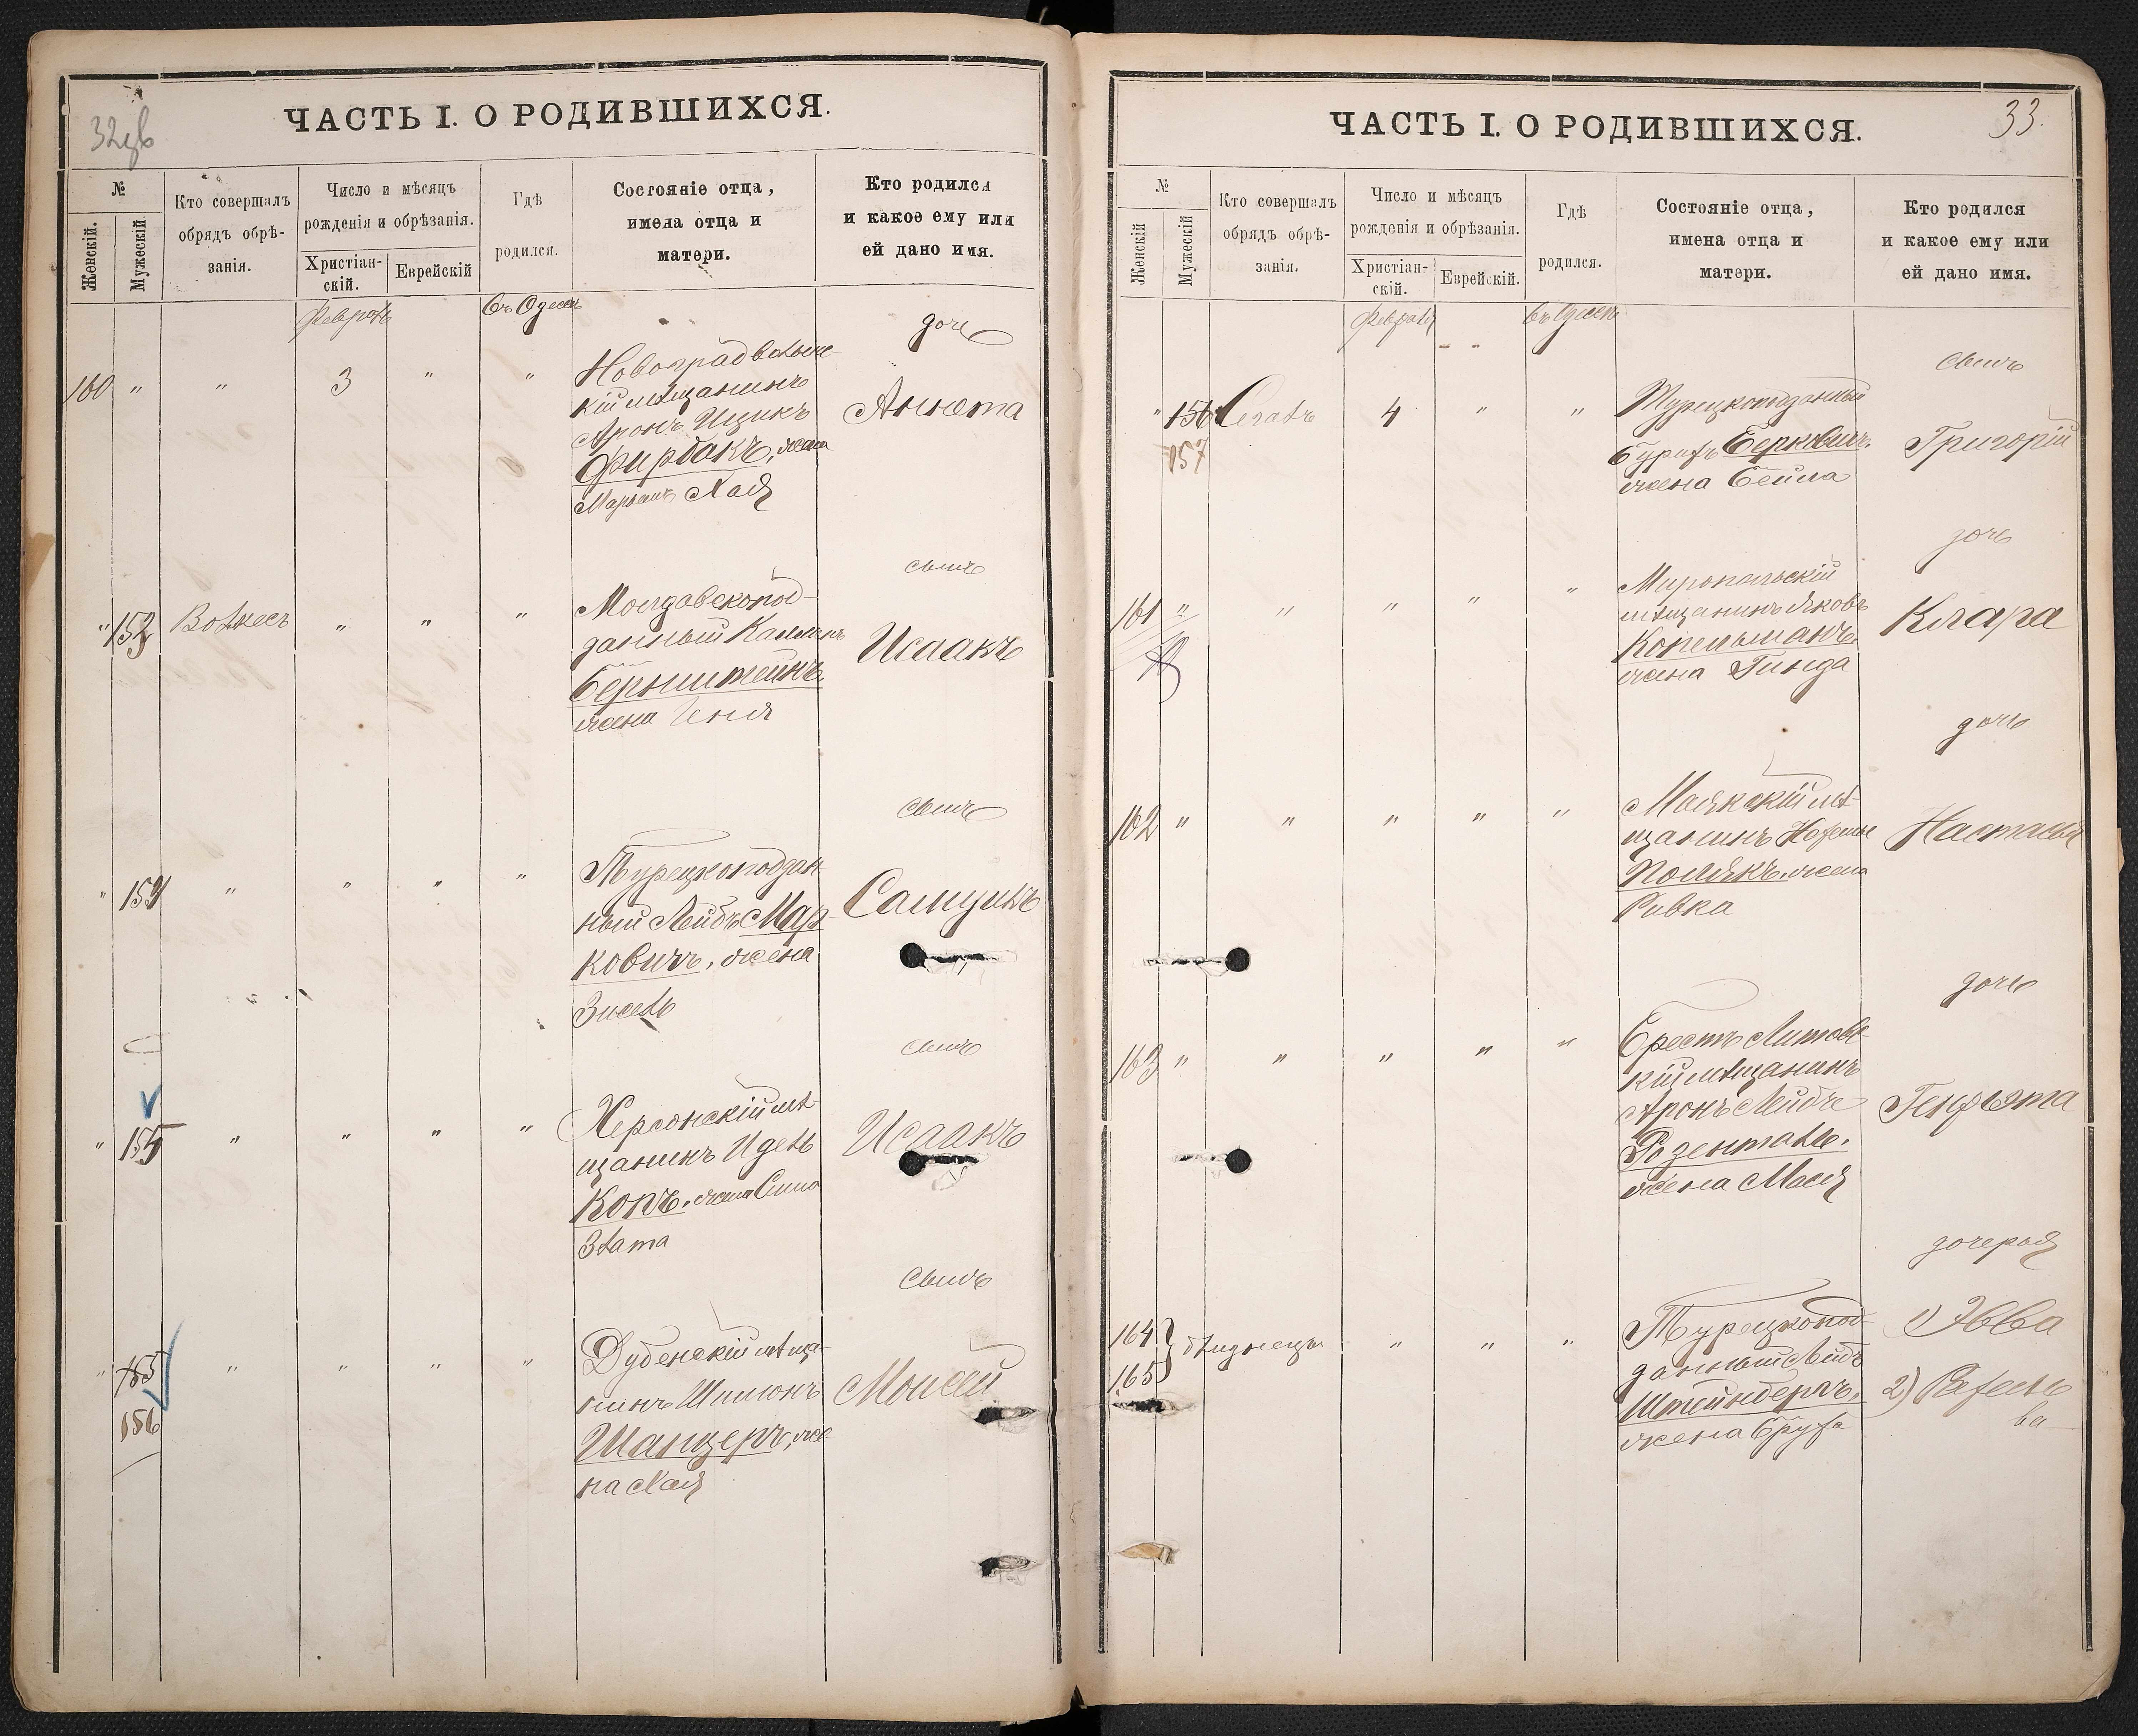 32об
ЧАСТЬ I. О РОДИВШИХСЯ.
№
Женскій.
Мужескій
Кто совершалъ
обрядъ обрѣ-
занія.
Число и мѣсяцъ
рожденія и обрѣзанія.
Христіан-
скій.
Еврейскій
Гдѣ
родился.
Состояніе отца,
имена отца и
матери.
Кто родился
и какое ему или
ей дано имя.
Февраль
въ Одессѣ
дочь
160 " " 3 " "
Новоградволын-
скій мѣщанинъ
Аронъ Ицикъ
Фирбакъ, жена
Марьямъ Хая
Анюта
сынъ
" 153 Волкесъ " " "
Молдавскопод-
данный Калманъ
Бернштейнъ,
жена Геня
Исаакъ
сынъ
" 154 " " " "
Турецкоподдан-
ный Лейбъ Мар-
ковичъ, жена
Зисель
Самуилъ
сынъ
" 155 " " " "
Херсонскій мѣ-
щанинъ Идель
Копъ, жена Сима
Злата
Исаакъ
сынъ
" 155 " " " "
156
Дубенскій мѣща-
нинъ Шимонъ
Шанцеръ, же-
на Хая
Моисей
33.
ЧАСТЬ I. О РОДИВШИХСЯ.
№
Женскій
Мужескій
Кто совершалъ
обрядъ обрѣ-
занія.
Число и мѣсяцъ
рожденія и обрѣзанія.
Христіан-
скій.
Еврейскій.
Гдѣ
родился.
Состояніе отца,
имена отца и
матери.
Кто родился
и какое ему или
ей дано имя.
Февраля
въ Одессѣ
сынъ
" 156 Сегалъ 4 " "
157
Турецкоподданный
Берковичъ,
жена Бейла
Григорій
дочь
161 " " " " "
Миропольскій
мѣщанинъ Яковъ
Копельманъ,
жена Гинда
Клара
дочь
162 " " " " "
Маякскій мѣ-
щанинъ
Полякъ, жена
Ривка
Настасья
дочь
163 " " " " "
Брестъ Литов-
скій мѣщанинъ
Аронъ Лейбъ
Розенталь,
жена Мася
Генрьэта
дочерья
164
165 близнецы " " "
Турецкопод-
данный Лейбъ
Штейнбергъ,
жена Груза
1) Эвва
2)